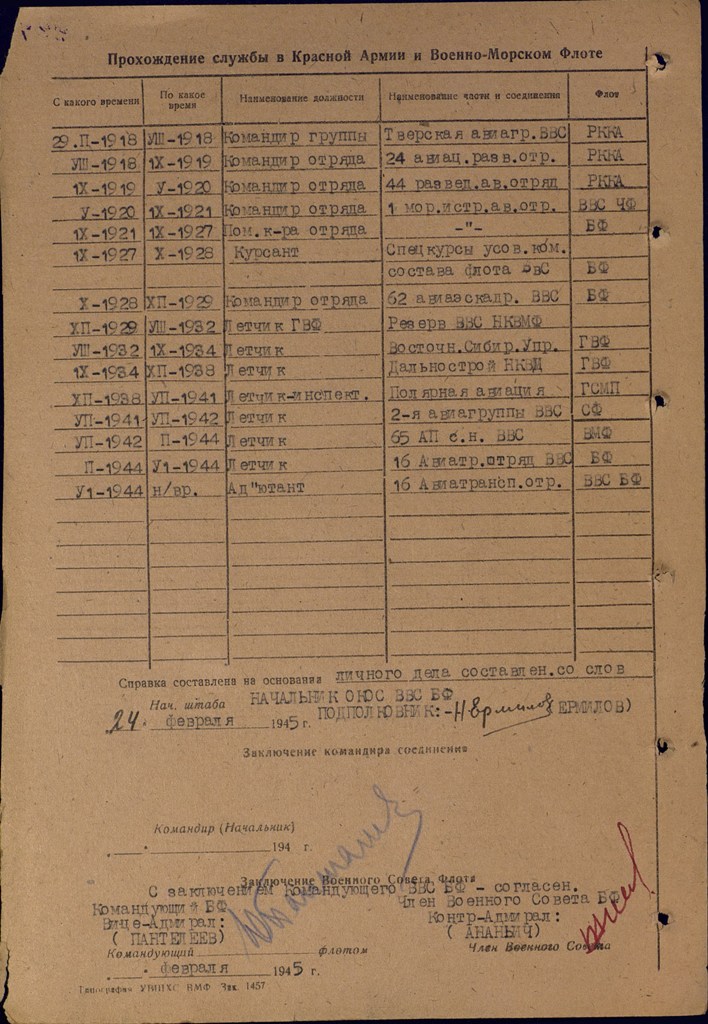 Прохождение службы в Красной Армии и Военно-Морском Флоте
С какого времени По какое время Наименование должности Наименование части и соединения Флот
29.П-1918 УШ-1918 Командир группы Тверская авиагр.ВВС РККА
УШ-1918 1Х-1919 Командир отряда 24 авиац.разв.отр. РККА
1Х-1919 У-1920 Командир отряда 44 развед.ав.отряд РККА
У-1920 1Х-1921 Командир отряда 1 мор.истр.ав.отр. ВВС ЧФ
1Х-1921 1Х-1927 Пом.к-ра отряда -"- БФ
1Х-1927 Х-1928 Курсант Спецкурсы усов.ком.
состава флота ВВС БФ
Х-1928 ХП-1929 Командир отряда 62 авиаэскадр. ВВС БФ
ХП-1929 УШ-1932 Летчик ГВФ Резерв ВВС НКВМФ
УШ-1932 1Х-1934 Летчик Восточн.Сибир.Упр. ГВФ
1Х-1934 ХП-1938 Летчик Дальнострой НКВД ГВФ
ХП-1938 УП-1941 Летчик-инспект. Полярная авиация ГСМП
УП-1941 УП-1942 Летчик 2-я авиагруппы ВВС СФ
УП-1942 П-1944 Летчик 65 АП с.н. ВВС ВМФ
П-1944 У1-1944 Летчик 16 Авиатр.отряд ВВС БФ
У1-1944 н/вр. Ад"ютант 16 Авиатрансп.отр. ВВС БФ
Справка составлена на основании личного дела составлен.со слов
Нач. штаба НАЧАЛЬНИК ОКОС ВВС БФ
24 февраля 1945 г. ПОДПОЛКОВНИК:- Н Ермилов ЕРМИЛОВ)
Заключение командира соединения
Командир (Начальник)
194 г.
Заключение Военного Совета Флота
С заключением Командующего ВВС БФ - согласен.
Командующий БФ Член Военного Совета БФ
Вице-Адмирал: Контр-Адмирал:
( ПАНТЕЛЕЕВ) ( АНАНЬИЧ)
Командующий флотом Член Военного Совета
февраля 1945 г.
Типография УВИКС ВМФ Зак. 1457